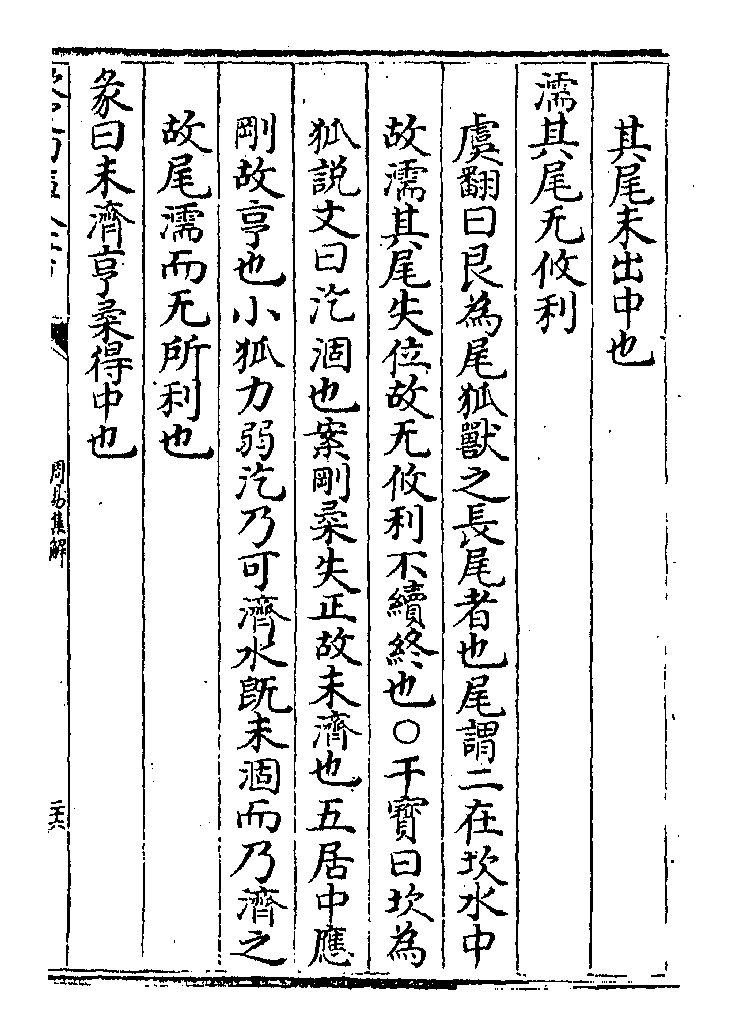 其尾未出中也
濡其尾无攸利
虞翻曰艮為尾狐獸之長尾者也尾謂二在坎水中
故濡其尾失位故无攸利不續終也○干寳曰坎為
狐説文曰汔涸也案剛柔失正故未濟也五居中應
剛故亨也小狐力弱汔乃可濟水旣未涸而乃濟之
故尾濡而无所利也
彖曰未濟亨柔得中也
周易集解
二六